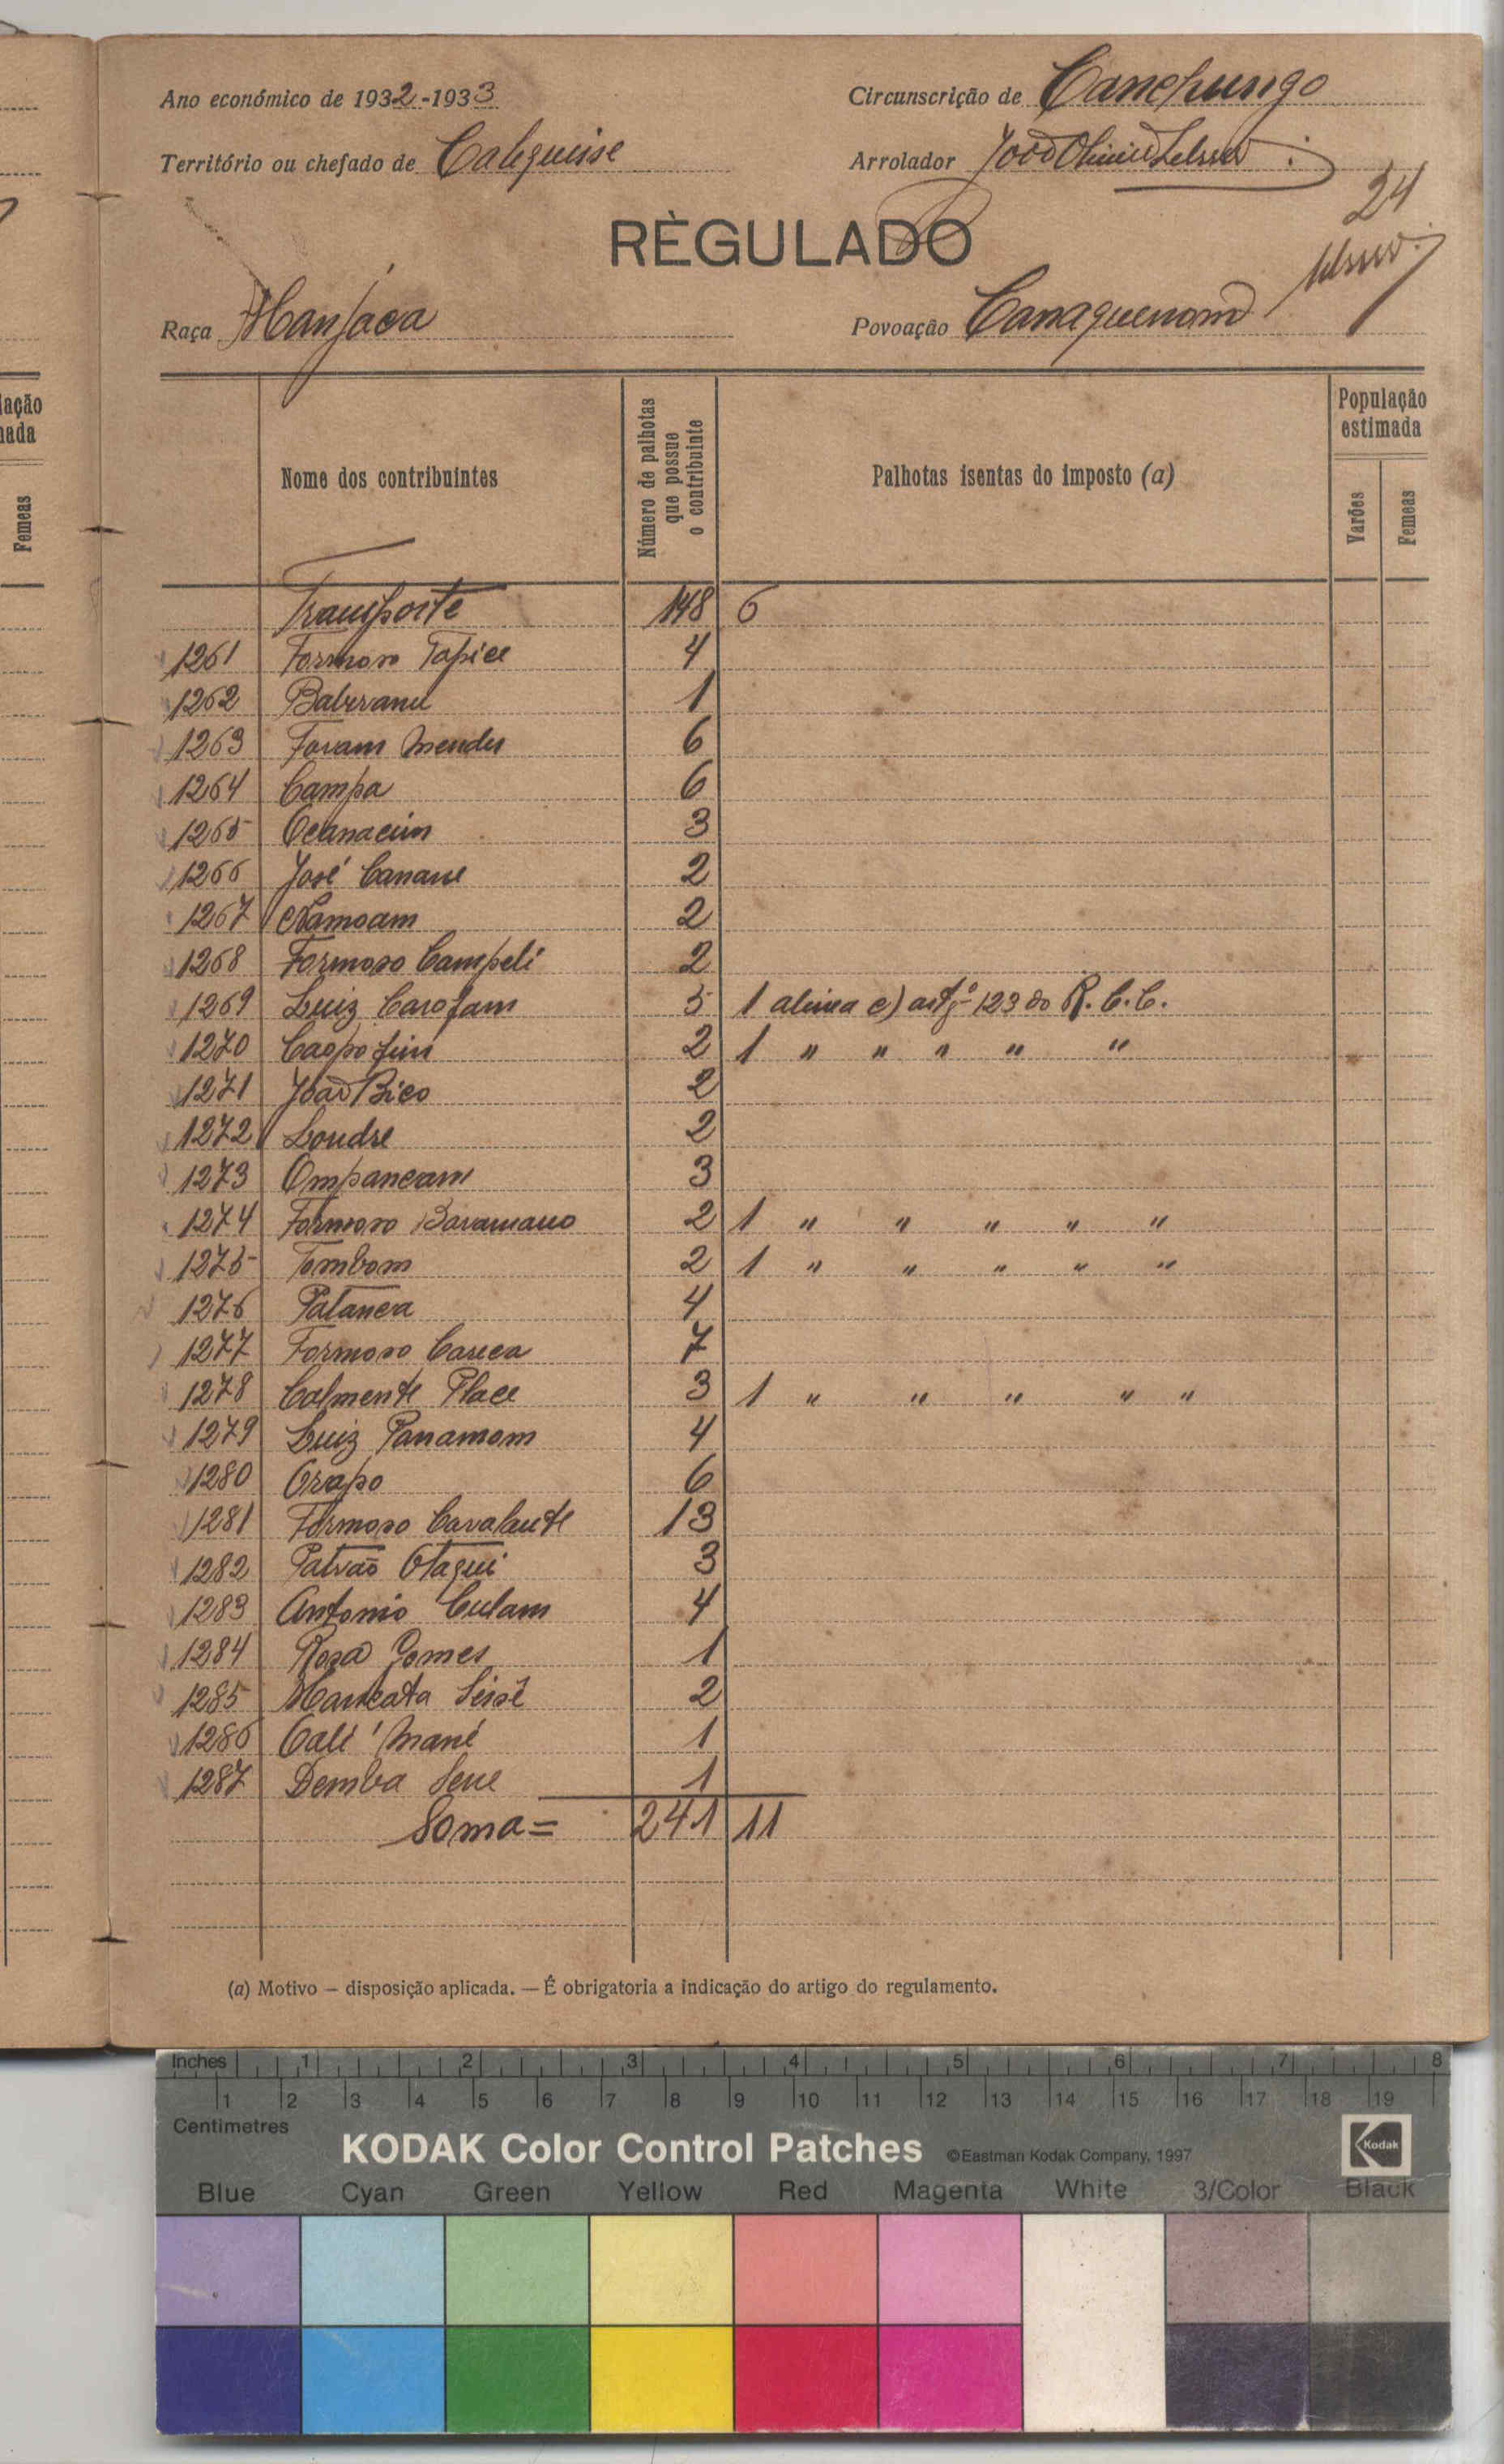 Ano económico de 1932-1933
Circunscrição de Canchungo
Território ou chefado de Calequisse
Arrolador João
24
RÈGULADO
Raça Manjaca
Povoação Canaquenom
Nome dos contribuintes
Número de palhotas que possue o contribuinte
Palhotas isentas do imposto (a)
População estimada
Varões
Femeas
lação
nada
Femeas
Transporte 148 6
1261 Formoso Tapice 4
1262 Baberanel 1
1263 Foram Mendes 6
1264 Campa 6
1265 Ocanacim 3
1266 José Canane 2
1267 Namoam 2
1268 Formoso Campeli 2
1269 Luiz Carofam 5 1 alinea c) artgº 123 do R. C. C.
1270 Caopo fini 2 1 " " " " "
1271 João Bico 2
1272 Loudre 2
1273 Ompancam 3
1274 Formoso Baramano 2 1 " " " " "
1275 Tombom 2 1 " " " " "
1276 Patanca 4
1277 Formoso Careca 7
1278 Calmente Place 3 1 " " " " "
1279 Luiz Panamom 4
1280 Orapo 6
1281 Formoso Cavalante 13
1282 Patrão Otaqui 3
1283 Antonio Culam 4
1284 Roza Gomes 1
1285 Mancata Seisé 2
1286 Calé Mané 1
1287 Demba Sene 1
Soma = 241 11
(a) Motivo — disposição aplicada. — É obrigatoria a indicação do artigo do regulamento.
Inches 1 2 3 4 5 6 7 8
1 2 3 4 5 6 7 8 9 10 11 12 13 14 15 16 17 18 19
Centimetres
KODAK Color Control Patches ©Eastman Kodak Company, 1997 Kodak
Blue Cyan Green Yellow Red Magenta White 3/Color Black